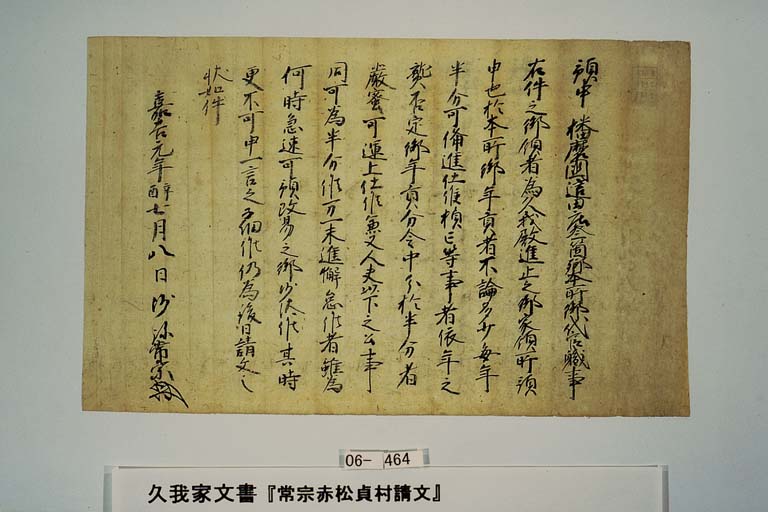 預申 播磨國這田庄叁箇郷本所御代官職事
右件之御領者為久我殿進止之御家領所預
申也於本所御年貢者不論多少毎年
半分可備進仕候損亡等事者依年之
豊否定御年貢分令中分於半分者
厳蜜可運上仕候兼又人夫以下之公事
同可為半分候万一未進懈怠候者雖為
何時急速可預改易之御沙汰候其時
更不可申一言之子細候仍為後日請文之
状如件
嘉吉元年辛酉七月八日 沙弥常宗
06- 464
久我家文書『常宗赤松貞村請文』